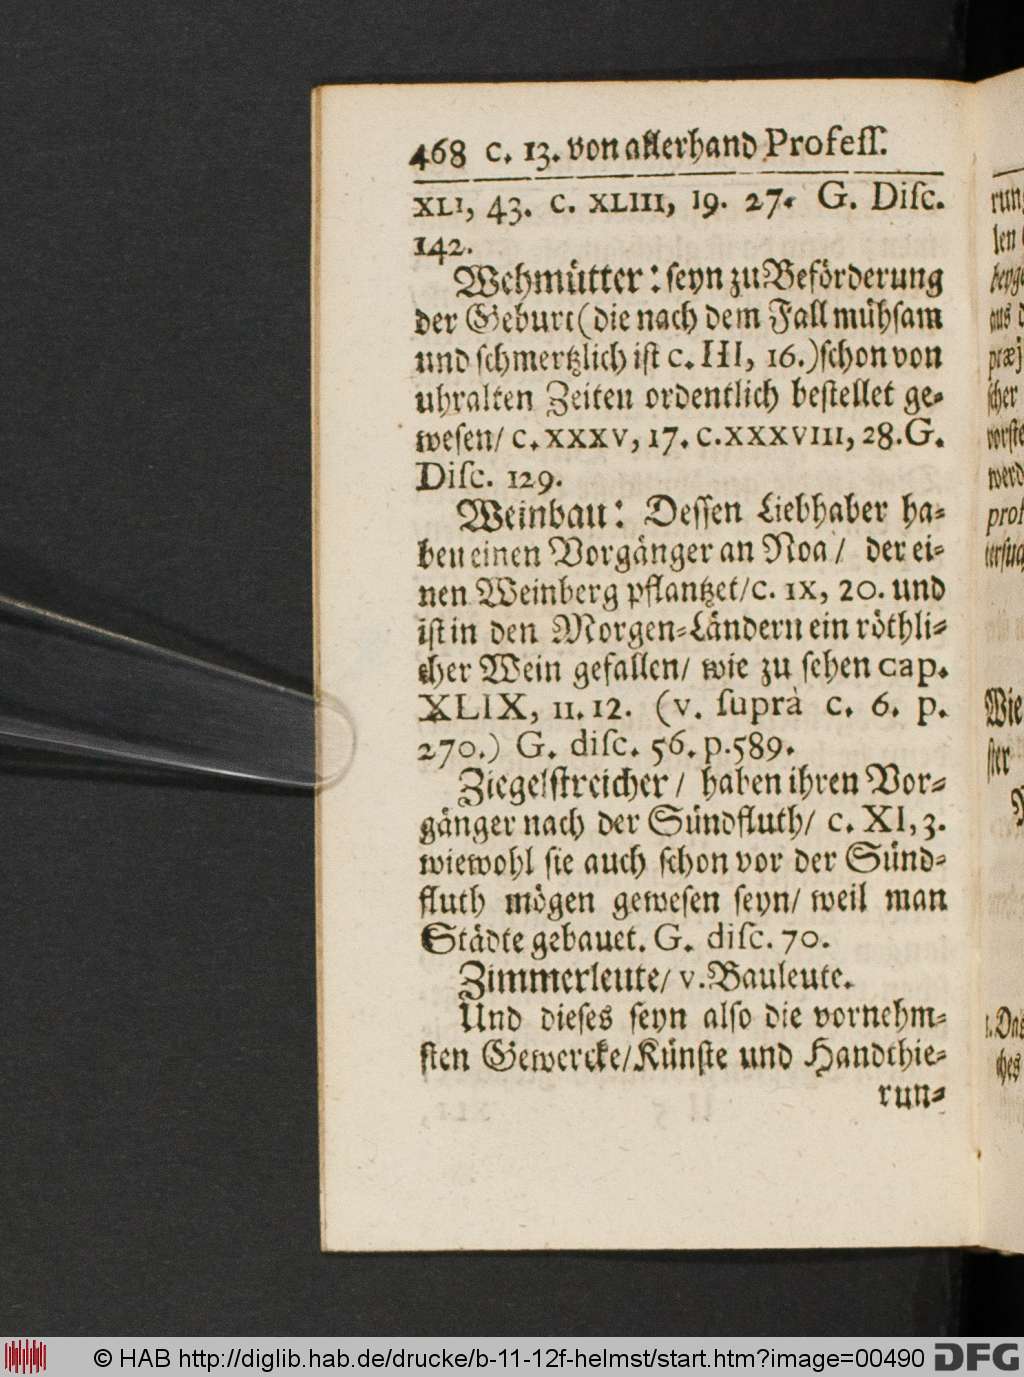 468 c. 13. von allerhand Profeſſ.
XLI, 43. c. XLIII, 19. 27. G. Diſc.
142.
Wehmütter: ſeyn zu Beförderung
der Geburt (die nach dem Fall mühſam
und ſchmertzlich iſt c. III, 16.) ſchon von
uhralten Zeiten ordentlich beſtellet ge-
weſen/ c. XXXV, 17. c. XXXVIII, 28. G.
Diſc. 129.
Weinbau: Deſſen Liebhaber ha-
ben einen Vorgänger an Noa/ der ei-
nen Weinberg pflantzet/ c. IX, 20. und
iſt in den Morgen-Ländern ein röthli-
cher Wein gefallen/ wie zu ſehen cap.
XLIX, 11. 12. (v. ſuprà c. 6. p.
270.) G. diſc. 56. p. 589.
Ziegelſtreicher/ haben ihren Vor-
gänger nach der Sündfluth/ c. XI, 3.
wiewohl ſie auch ſchon vor der Sünd-
fluth mögen geweſen ſeyn/ weil man
Städte gebauet. G. diſc. 70.
Zimmerleute/ v. Bauleute.
Und dieſes ſeyn alſo die vornehm-
ſten Gewercke/ Künſte und Handthie-
run-
rung
len
aus
ſcher
werd
prof
Wie
ſter
ches
© HAB http://diglib.hab.de/drucke/b-11-12f-helmst/start.htm?image=00490
DFG